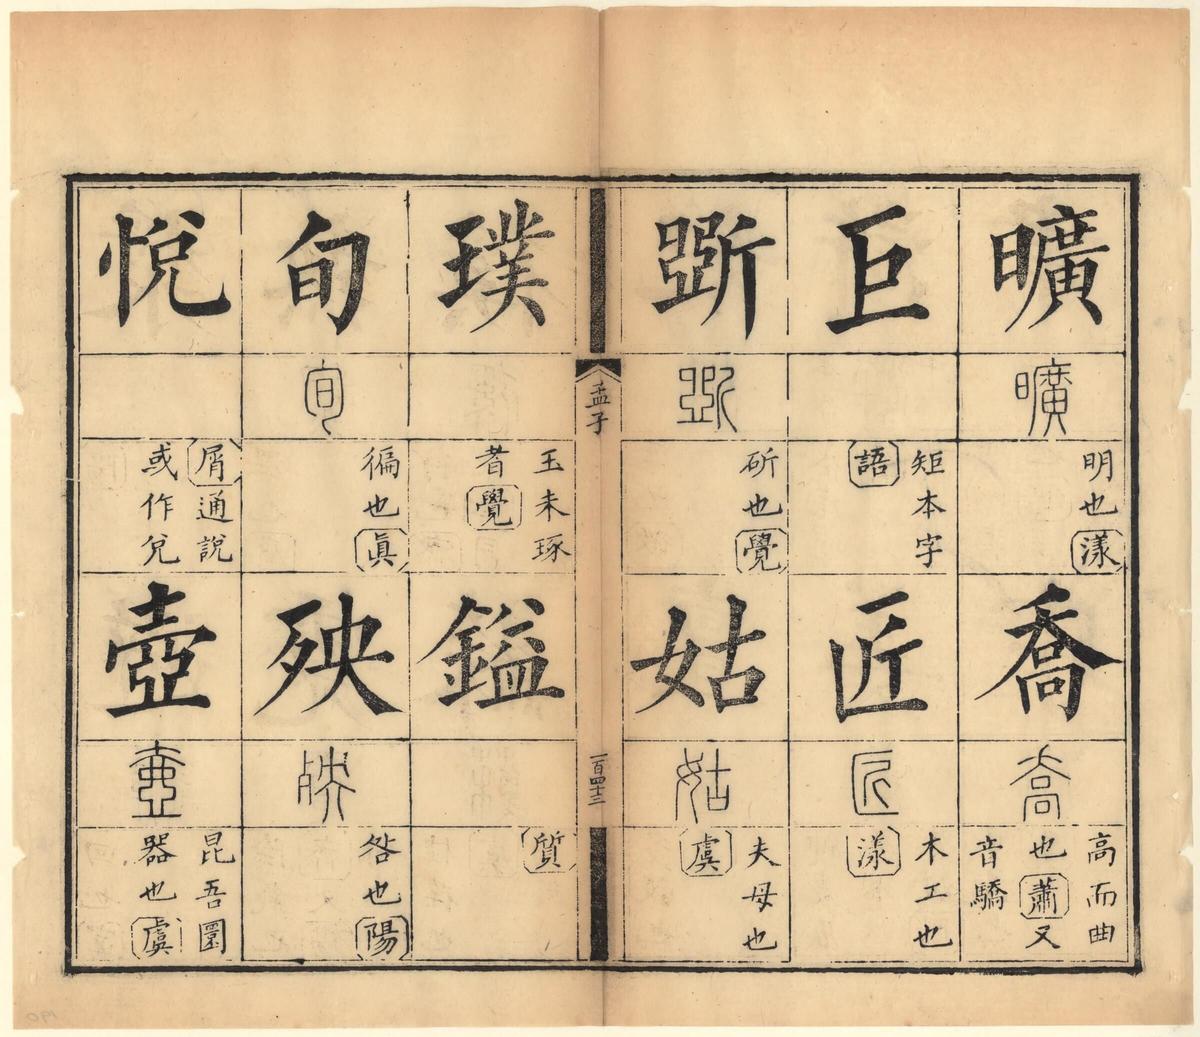 曠
曠
明也漾
喬
喬
高而曲
也蕭又
音驕
巨
矩本字
語
匠
匠
木工也
漾
斲
斲
斫也覺
姑
姑
夫母也
虞
孟子
一百四十三
璞
玉未琢
者覺
鎰
質
旬
旬
徧也眞
殃
殃
咎也陽
悅
屑通說
或作兌
壺
壺
昆吾圜
器也虞